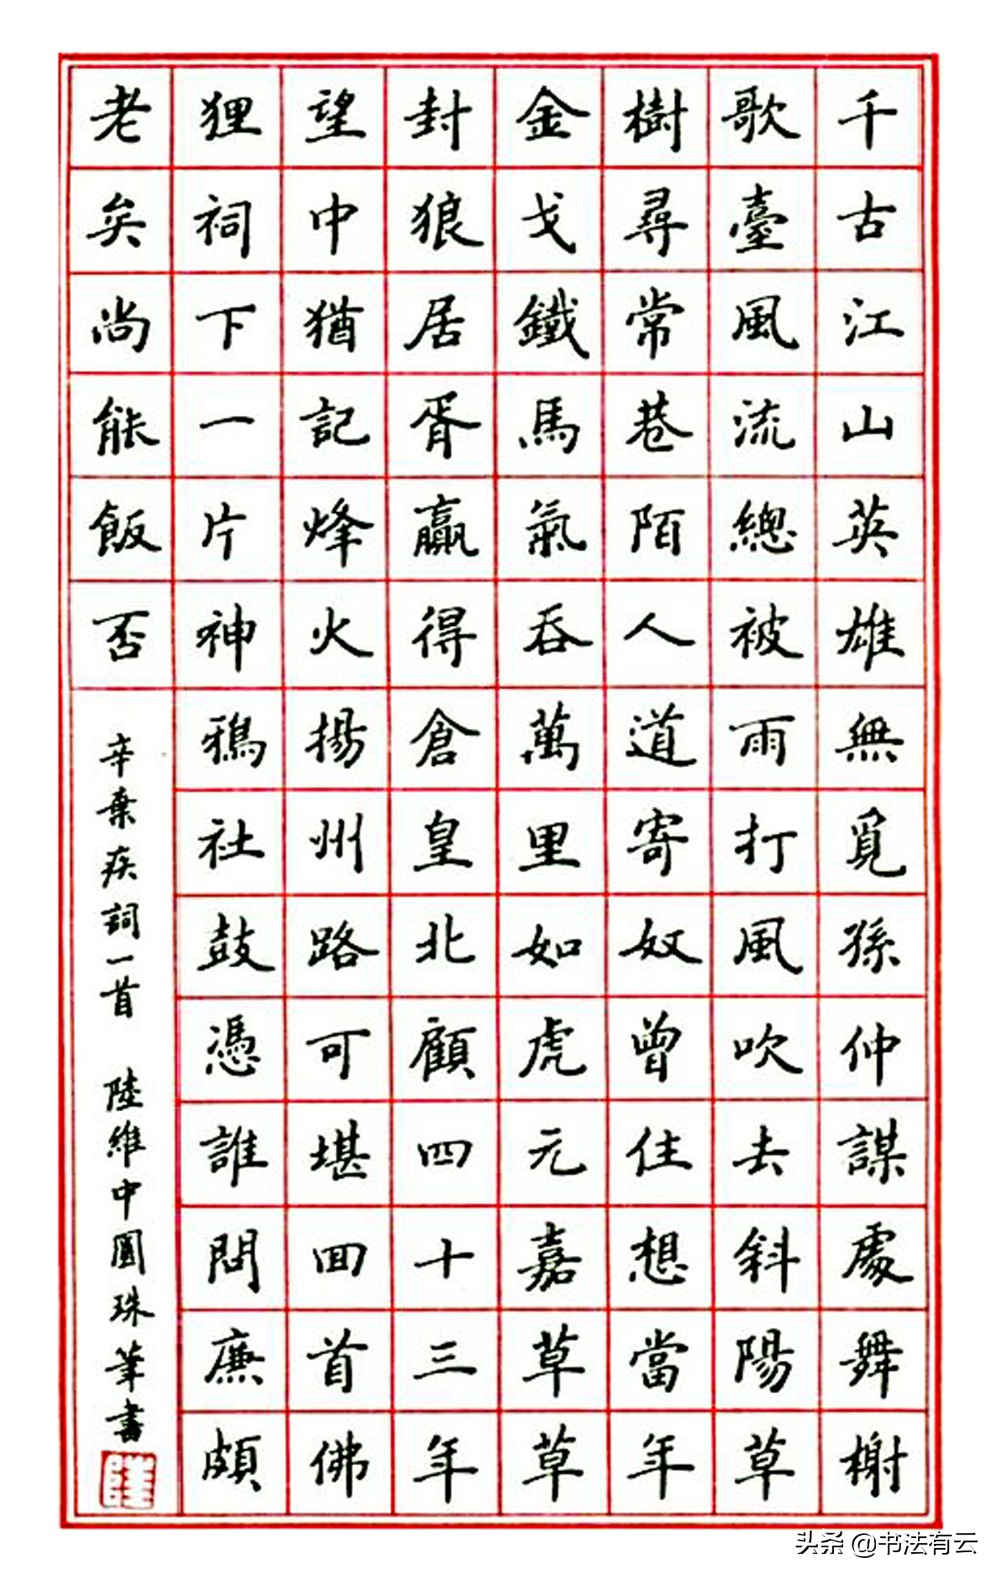 千古江山英雄無覓孫仲謀處舞榭
歌臺風流總被雨打風吹去斜陽草
樹尋常巷陌人道寄奴曾住想當年
金戈鐵馬氣吞萬里如虎元嘉草草
封狼居胥贏得倉皇北顧四十三年
望中猶記烽火揚州路可堪回首佛
狸祠下一片神鴉社鼓憑誰問廉頗
老矣尚能飯否
辛棄疾詞一首 陸維中圓珠筆書
陸
头条 @书法有云